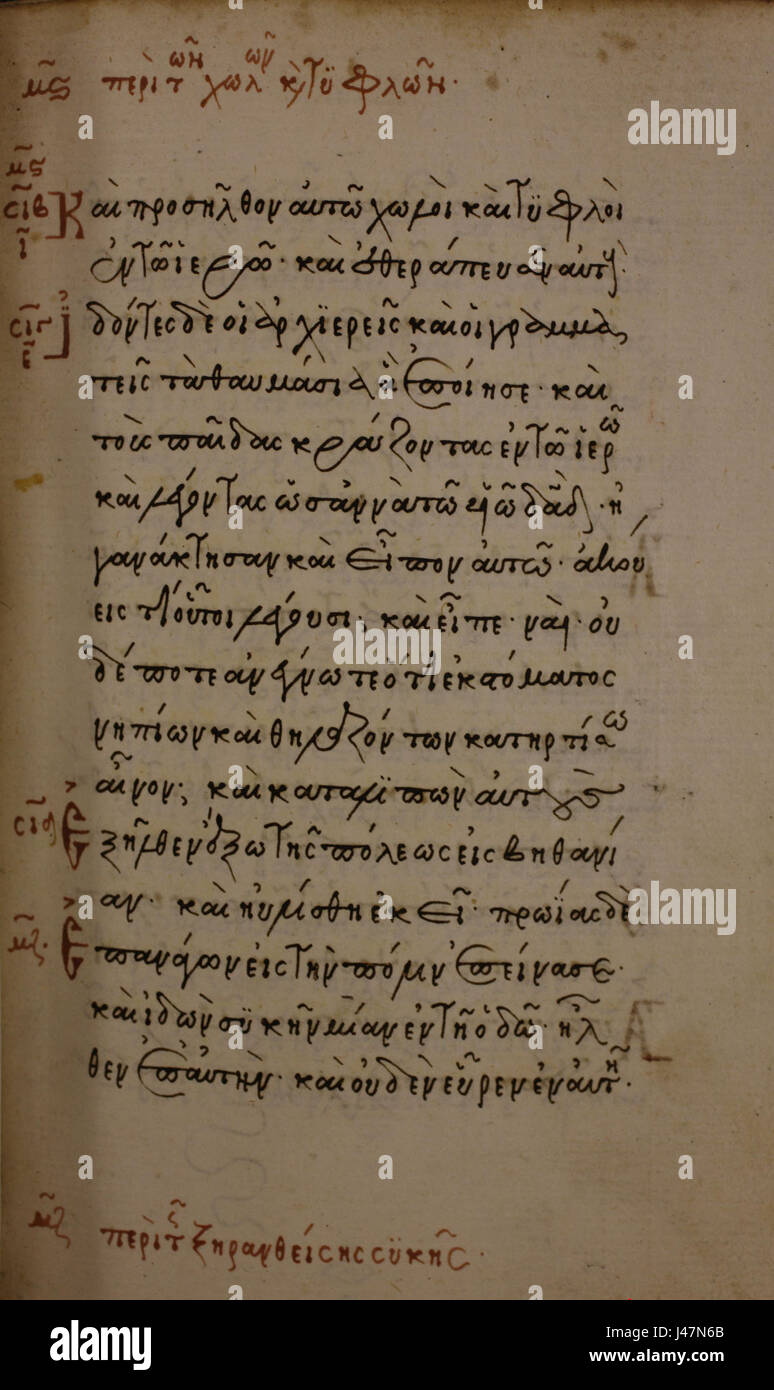 μϛ περὶ τῶν χωλῶν κ τϋφλῶν·
μϛ
σιβ Καὶ προσῆλθον αὐτῶ χωλοὶ καὶ τϋφλοὶ
ι ἐν τῶ ἱερῶ· καὶ ἐθεράπευσεν αὐτούς·
σιγ ἰδόντες δὲ οἱ ἀρχϊερεῖς καὶ οἱ γραμμα
ε τεῖς τὰ θαυμάσια ἃ ἐποίησε· καὶ
τοὺς παῖδας κράζοντας ἐν τῶ ἱερῶ
καὶ λέγοντας ὡσαννὰ τῶ υἱῶ δαδ· ἠ
γανάκτησαν καὶ εἶπον αὐτῶ· ἀκού
εις τί οὗτοι λέγουσι; καὶ εἶπε· ναί· οὐ
δέποτε ἀνέγνωτε ὅτι ἐκ στόματος
νηπίων καὶ θηλαζόντων κατηρτίσω
αἶνον; καὶ καταλϊπὼν αὐτοὺς
σιδ Ἐξῆλθεν ἔξω τῆς πόλεως εἰς βηθανί
αν· καὶ ηὐλίσθη ἐκεῖ· πρωίας δὲ
μζ Ἐπανάγων εἰς τὴν πόλιν ἐπείνασε·
καὶ ἰδὼν σϋκῆν μίαν ἐν τῆ ὁδῶ· ἦλ
θεν ἐπ αὐτὴν· καὶ οὐδὲν εὗρεν ἐν αὐτῆ·
μζ περὶ τῆς ξηρανθείσης σϋκῆς·
alamy
alamy
alamy
alamy
Image ID: J47N6B
www.alamy.com